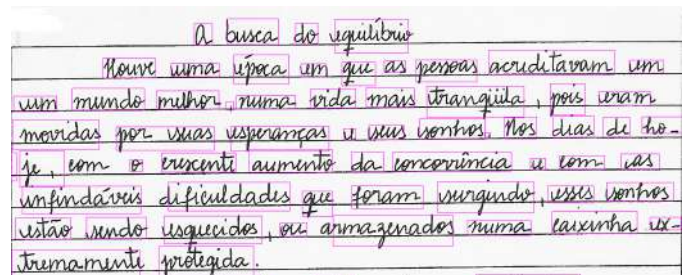 A busca do equilíbrio
Houve uma época em que as pessoas acreditavam em
um mundo melhor, numa vida mais tranqüila, pois eram
movidas por suas esperanças e seus sonhos. Nos dias de ho-
je, com o crescente aumento da concorrência e com as
infindáveis dificuldades que foram surgindo, esses sonhos
estão sendo esquecidos, ou armazenados numa caixinha ex-
tremamente protegida.